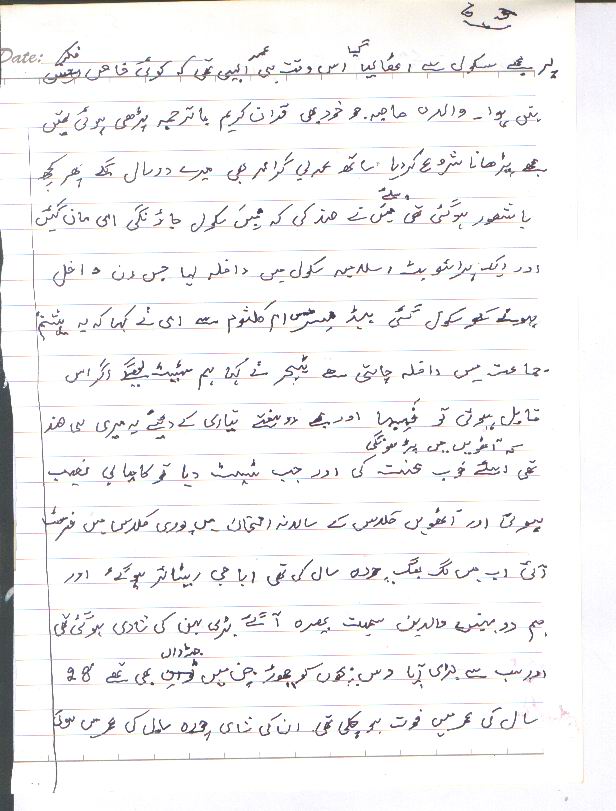 Date:
پر مجھے سکول سے اٹھا لیا گیا اس وقت میری عمر ایسی تھی کہ کوئی خاص فکر
نہیں ہوا۔ والدہ صاحبہ جو خود بھی قرآن کریم با ترجمہ پڑھی ہوئی تھیں
مجھے پڑھانا شروع کر دیا ساتھ عربی گرائمر بھی میرے دو سال لگے پھر کچھ
با شعور ہو گئی تھی اسلئے میں نے ضد کی کہ میں سکول جاؤنگی امی مان گئیں
اور ایک پرائیویٹ اسلامیہ سکول میں داخلہ لیا جس دن داخل
ہونے سکول گئی ہیڈ مسٹرس ام کلثوم سے امی نے کہا کہ یہ ہشتم
جماعت میں داخلہ چاہتی ہے ٹیچر نے کہا ہم ٹیسٹ لینگے اگر اس
قابل ہوئی تو اور مجھے دو ہفتے تیاری کے دیئے یہ میری ہی ضد
کہ آٹھویں میں پڑھونگی
تھی اسلئے خوب محنت کی اور جب ٹیسٹ دیا تو کامیابی نصیب
ہوئی اور آٹھویں کلاس کے سالانہ امتحان میں پوری کلاس میں فرسٹ
آئی اب میں لگ بھگ چودہ سال کی تھی ابا جی ریٹائر ہو گئے اور
ہم دو بہنیں والدین سمیت بصرہ آ گئے بڑی بہن کی شادی ہو گئی تھی
اور سب سے بڑی آپا دس بچوں کو چھوڑ جن میں جڑواں بھی تھے 28
سال کی عمر میں فوت ہو چکی تھی ان کی شادی چودہ سال کی عمر میں ہوئی